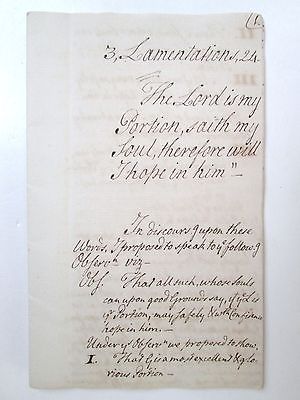 (1.
3, Lamentations, 24.
The Lord is my
Portion, saith my
Soul, therefore will
I hope in him"—
In discours͛g upon these
Words. I proposed to speak to yͤ follow͛g
Observⁿ viz—
Obs. That all such, whose souls
can upon good Grounds say, yᵗ yͤ Ld is
yʳ Portion, may safely & wth Confidence
hope in him.—
Under yˢ Observⁿ we proposed to show.
I. That G is a most excellent & glo
rious Portion—